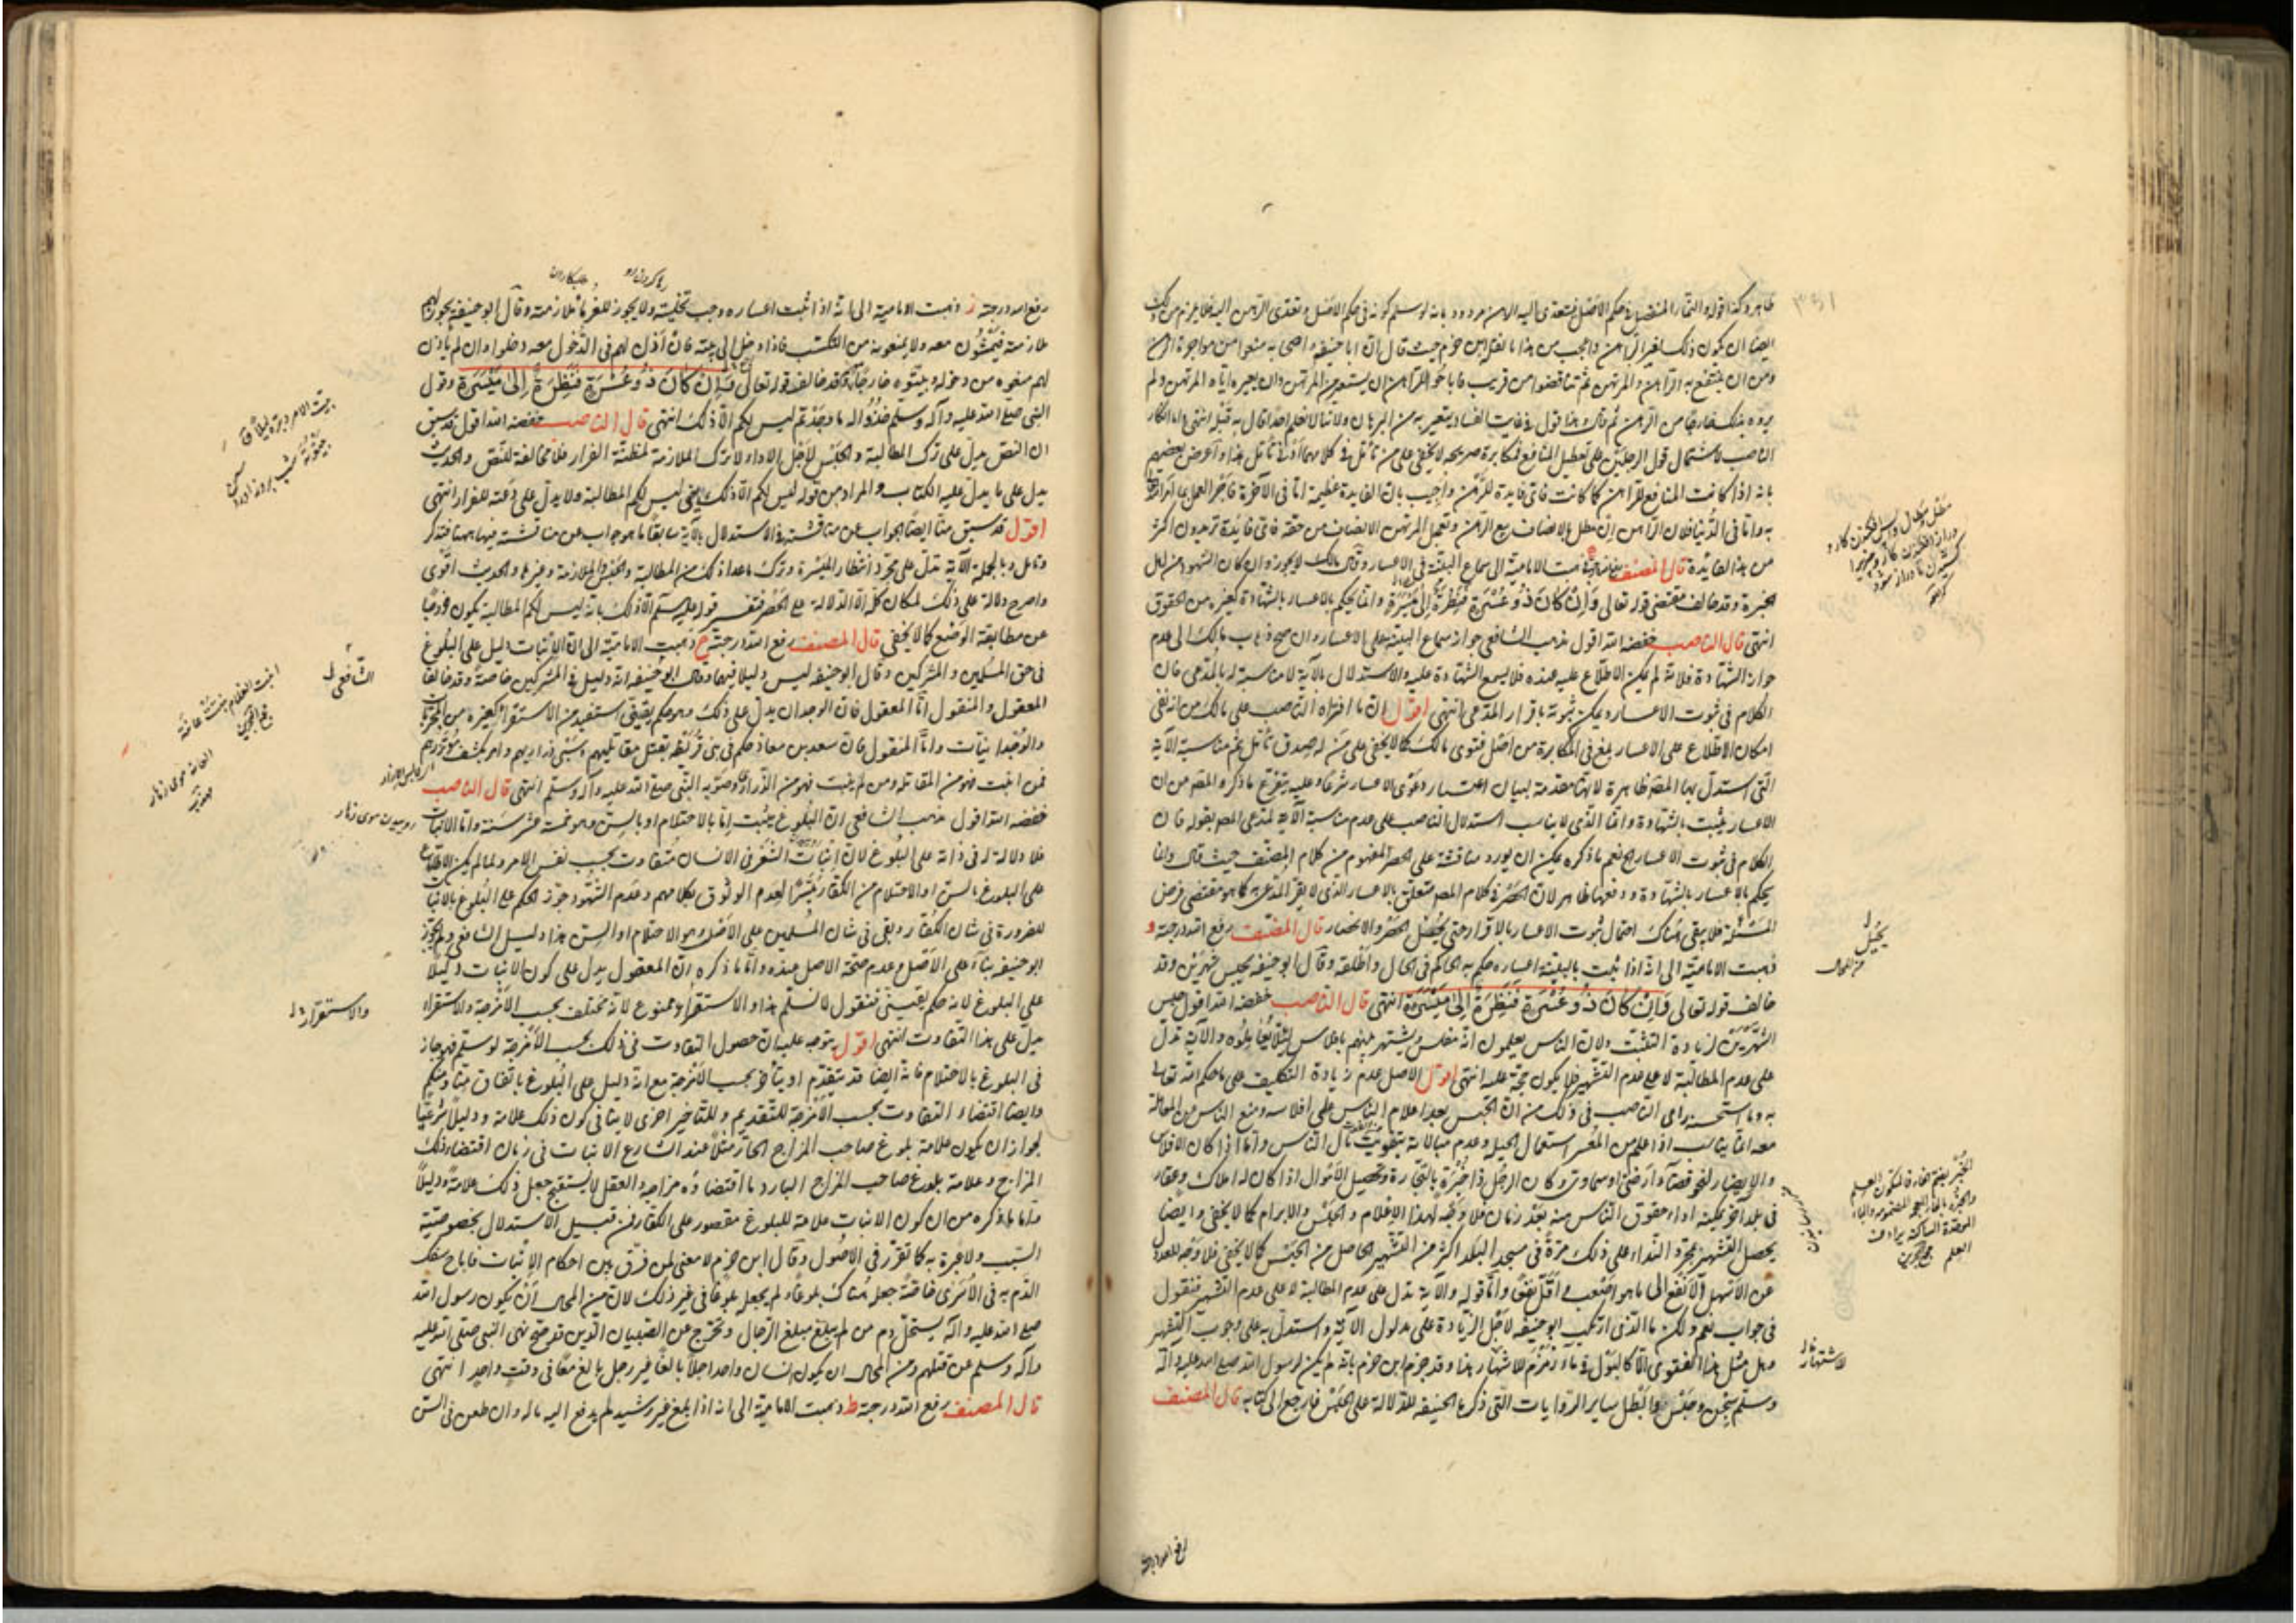 ظاهر وكذا قوله والنماء المنفصل في حكم الاصل فيتعدى اليه الرهن مردود بانه لو سلم كونه في حكم الاصل وتعدى الرهن اليه فلا يلزم من ذلك
ايضا ان يكون ذلك لغير الراهن واعجب من هذا ما نقل ابن حزم حيث قال ان ابا حنيفة واصحابه منعوا من مواجرة الرهن
ومن ان ينتفع به الراهن والمرتهن ثم تناقضوا من قريب فاباحوا للراهن ان يستعير من المرتهن وان يعيره اياه المرتهن ولم
يروه بذلك خارجا من الرهن ثم قال وهذا قول في غاية الفساد وتعرية من البرهان ولانا لا نعلم احدا قال به قبله انتهى واما انكار
الناصب لاشتمال قول الرجلين على تعطيل المنافع فمكابرة صريحة لا يخفى على من تأمل في كلامهما ادنى تأمل هذا واعترض بعضهم
بانه اذا كانت المنافع للراهن كما كانت فاي فايدة للرهن واجيب بان الفايدة عظيمة اما في الآخرة فاجر العمل بما امر الله
به واما في الدنيا فلان الراهن ان مطل بالانصاف بيع الرهن وتعجل المرتهن الانصاف من حقه فاي فائدة تريدون اكثر
من هذا الفائدة قال المصنف ذهبت الامامية الى سماع البينة في الاعسار وقال مالك لا يجوز وان كان الشهود من اهل
الخبرة وقد خالف مقتضى قوله تعالى وَاِنْ كَانَ ذُو عُسْرَةٍ فَنَظِرَةٌ اِلى مَيْسَرَةٍ وانما يحكم بالاعسار بالشهادة كغيره من الحقوق
انتهى قال الناصب خفضه الله اقول مذهب الشافعي جواز سماع البينة على الاعسار وان صح ذهاب مالك الى عدم
جواز الشهادة فلانه لم يكن الاطلاع عليه عنده فلا يسمع الشهادة عليه والاستدلال بالآية لا مناسبة له بالمدعى فان
الكلام في ثبوت الاعسار ويمكن ثبوته باقرار المدعى انتهى اقول ان ما افتراه الناصب على مالك من انه نفى
امكان الاطلاع على الاعسار بلغ في المكابرة من اصل فتوى مالك كما لا يخفى على من له صدق تأمل ثم مناسبة الآية
التي استدل بها المصنف ظاهرة لانها مقدمة لبيان اعتبار دعوى الاعسار شرعا وعليه يتفرع ما ذكره المصنف من ان
الاعسار يثبت بالشهادة وانما الذي لا يناسب استدلال الناصب على عدم مناسبة الآية لمدعى المصنف بقوله فان
الكلام في ثبوت الاعسار الخ نعم ما ذكره يمكن ان يورد مناقشة على الحصر المفهوم من كلام المصنف حيث قال وانما
يحكم بالاعسار بالشهادة ودفعها ظاهر لان الحصر في كلام المصنف متعلق بالاعسار الذي لا يقر المدعى كما هو مقتضى فرض
المسئلة فلا يبقى هناك احتمال ثبوت الاعسار بالاقرار حتى يخل الحصر والانحصار قال المصنف رفع الله درجته و
ذهبت الامامية الى انه اذا ثبت بالبينة اعساره حكم به الحاكم في الحال واطلقه وقال ابو حنيفة يحبس شهرين وقد
خالف قوله تعالى وَاِنْ كَانَ ذُو عُسْرَةٍ فَنَظِرَةٌ اِلى مَيْسَرَةٍ انتهى قال الناصب خفضه الله اقول حبس
الشهرين لزيادة التثبت ولان الناس يعلمون انه مفلس ويشتهر بينهم بافلاس لئلا يعاملوه والآية تدل
على عدم المطالبة لا على عدم التشهير فلا يكون حجة عليه انتهى اقول الاصل عدم زيادة التكليف على ما حكم الله تعالى
به وما استحسنه رأى الناصب في ذلك من ان الحبس بعد اعلام الناس على افلاسه ومنع الناس من المعاملة
معه انما يناسب اذا علم من المعسر استعمال الحيل وعدم مبالاته بتفويت مال الناس واما اذا كان الافلاس
والاعسار لنحو قضاء ارضي او سماوي وكان الرجل ذا خبرة بالتجارة وتحصيل الاموال اذا كان له املاك وعقار
في بلد آخر يمكنه اداء حقوق الناس منه بعد زمان فلا وجه لهذا الاعلام والحبس والابرام كما لا يخفى وايضا
يحصل التشهير بمجرد النداء على ذلك مرة في مسجد البلد اكثر من التشهير الحاصل من الحبس كما لا يخفى فلا وجه للعدول
عن الاسهل الانفع الى ما هو اصعب واقل نفعا واما قوله والآية تدل على عدم المطالبة لا على عدم التشهير فنقول
في جوابه نعم ولكن ما الذي ارتكب ابو حنيفة لاجل الزيادة على مدلول الآية واستدل به على وجوب التشهير
وهل مثل هذا الفتوى الا كالبول في ماء زمزم للاشتهار هذا وقد جزم ابن حزم بانه لم يكن لرسول الله صلى الله عليه وآله
وسلم سجن وحبس وابطل ساير الروايات التي ذكرها الحنيفة للدلالة على الحبس فارجع الى كتابه قال المصنف
رفع الله درجته
يخيل
الاشتهار
رفع الله درجته ز ذهبت الامامية الى انه اذا ثبت اعساره وجب تخليته ولا يجوز للغرماء ملازمته وقال ابو حنيفة يجوز لهم
ملازمته فيمشون معه ولا يمنعونه من التكسب فاذا دخل الى بيته فان أذن لهم في الدخول معه دخلوا وان لم ياذن
لهم منعوه من دخوله وبيتوه خارجا وقد خالف قوله تعالى وَاِنْ كَانَ ذُو عُسْرَةٍ فَنَظِرَةٌ اِلى مَيْسَرَةٍ وقول
النبي صلى الله عليه وآله وسلم خذوا له ما وجدتم ليس لكم الا ذلك انتهى قال الناصب خفضه الله اقول قد سبق
ان النص يدل على ترك المطالبة والحبس لاجل الاداء لا ترك الملازمة لمظنة الفرار فلا مخالفة للنص والحديث
يدل على ما يدل عليه الكتاب والمراد من قوله ليس لكم الا ذلك يعني ليس لكم المطالبة ولا يدل على دعته للفرار انتهى
اقول قد سبق منا ايضا الجواب عن مناقشته في الاستدلال بالآية سابقا ما هو جواب عن مناقشته فيها ههنا فتذكر
وتامل وبالجملة الآية تدل على مجرد انتظار الميسرة وترك ما عدا ذلك من المطالبة والحبس والملازمة وغيرها والحديث اقوى
واصرح دلالة على ذلك لمكان كلمة الا الدالة على الحصر فتفسير قوله عليه السلم الا ذلك بانه ليس لكم المطالبة يكون خروجا
عن مطابقة الوضع كما لا يخفى قال المصنف رفع الله درجته ح ذهبت الامامية الى ان الانبات دليل على البلوغ
في حق المسلمين والمشركين وقال ابو حنيفة ليس دليلا فيهما وقال ابو حنيفة انه دليل في المشركين خاصة وقد خالفا
المعقول والمنقول اما المعقول فان الوجدان يدل على ذلك وهو حكم يقيني استفيد من الاستقراء كغيره من المجربات
والوجدانيات واما المنقول فان سعد بن معاذ حكم في بني قريظة بقتل مقاتليهم وسبي ذراريهم وامر بكشف مؤتزرهم
فمن انبت فهو من المقاتلة ومن لم ينبت فهو من الذراري وصوبه النبي صلى الله عليه وآله وسلم انتهى قال الناصب
خفضه الله اقول مذهب الشافعي ان البلوغ يثبت اما بالاحتلام او بالسن وهو خمسة عشر سنة واما الانبات
فلا دلالة له في ذاته على البلوغ لان انبات الشعر في الانسان متفاوت بحسب نفس الامر ولما لم يكن الاطلاع
على البلوغ بالسن او الاحتلام من الكفار متيسرا لعدم الوثوق بكلامهم وعدم الشهود جوز الحكم على البلوغ بالانبات
للضرورة في شان الكفار وبقى في شان المسلمين على الاصل وهو الاحتلام او السن هذا دليل الشافعي ولم يجوز
ابو حنيفة بناء على الاصل وعدم صحة الاصل عنده واما ما ذكره ان المعقول يدل على كون الانبات دليلا
على البلوغ لانه حكم يقيني فنقول لا نسلم هذا والاستقراء ممنوع لانه مختلف بحسب الامزجة والاستقراء
يدل على هذا التفاوت انتهى اقول يتوجه عليه ان حصول التفاوت في ذلك بحسب الامزجة لو سلم فهو جار
في البلوغ بالاحتلام فانه ايضا قد يتقدم او يتأخر بحسب الامزجة مع انه دليل على البلوغ باتفاق منا ومنكم
وايضا اقتضاء التفاوت بحسب الامزجة للتقديم وللتاخير اخرى لا ينافي كون ذلك علامة ودليلا شرعيا
لجواز ان يكون علامة بلوغ صاحب المزاج الحار مثلا عند الشارع الانبات في زمان اقتضاء ذلك
المزاج وعلامة بلوغ صاحب المزاج البارد ما اقتضاه مزاجه والعقل لا يستقبح جعل ذلك علامة ودليلا
واما ما ذكره من ان كون الانبات علامة للبلوغ مقصور على الكفار فمن قبيل الاستدلال بخصوصية
السبب ولا عبرة به كما تقرر في الاصول وقال ابن حزم لا معنى لمن فرق بين احكام الانبات فاباح سفك
الدم به في الاسرى خاصة جعله هناك بلوغا ولم يجعله بلوغا في غير ذلك لان من المحال ان يكون رسول الله
صلى الله عليه وآله يستحل دم من لم يبلغ مبلغ الرجال ويخرج عن الصبيان الذين قد صح نهى النبي صلى الله عليه
وآله وسلم عن قتلهم ومن المحال ان يكون انسان واحد رجلا بالغا غير رجل بالغ معا في وقت واحد انتهى
قال المصنف رفع الله درجته ط ذهبت الامامية الى انه اذا بلغ غير رشيد لم يدفع اليه ماله وان طعن في السن
الشافعي
والاستقراء